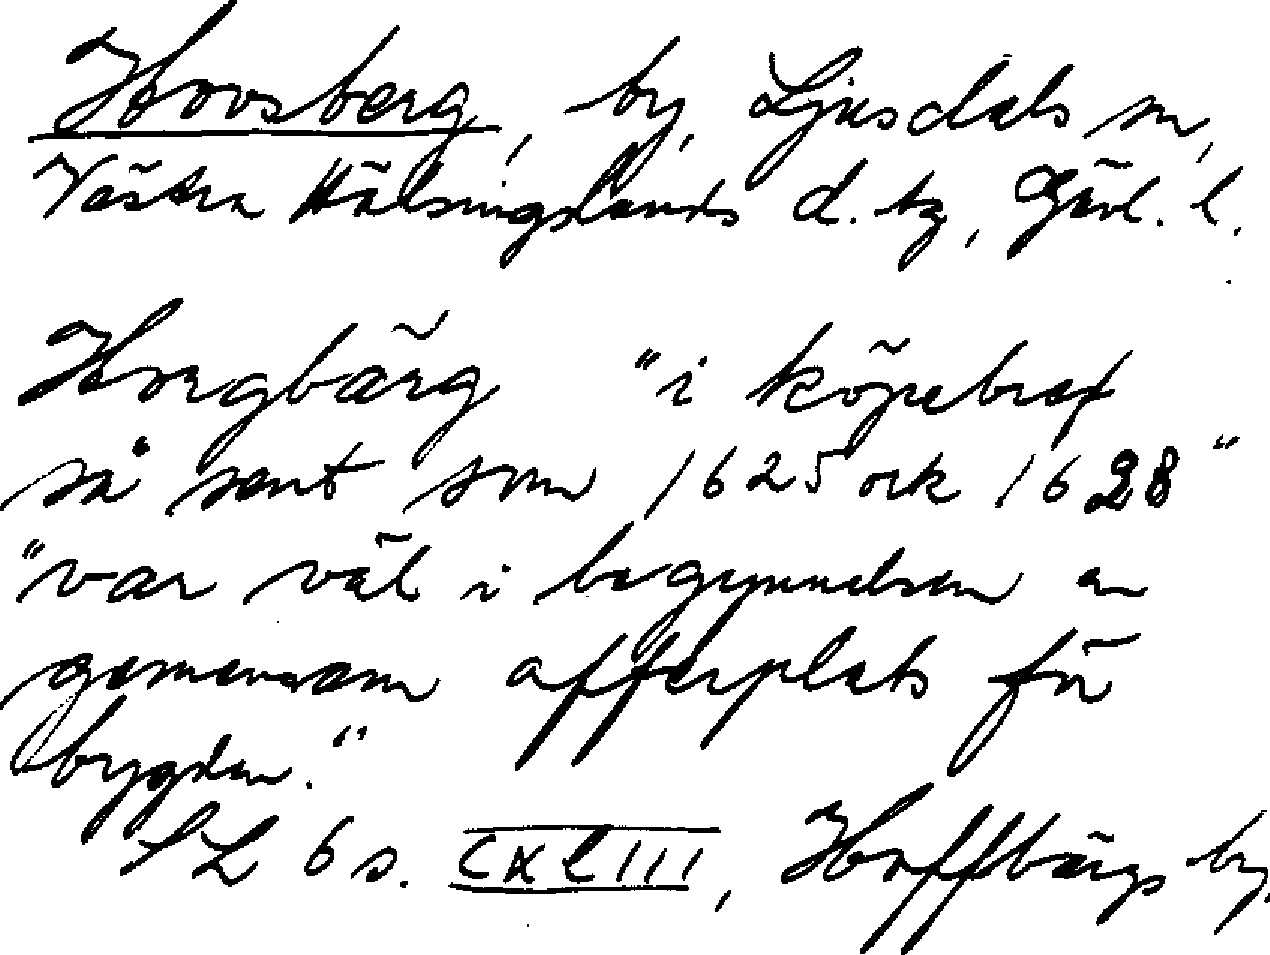 Hovsberg, by, Ljusdals sn,
Västra Hälsinglands d. tg, Gävl. l.
Horgbärg "i köpebref
så sent som 1625 ock 1628"
"var väl i begynnelsen en
gemensam offerplats för
bygden."
SL 6 s. CXLIII, Hoffbärgs by.